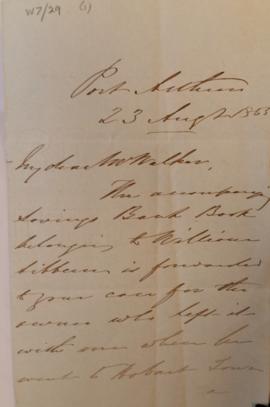 W7/29 (1)
Port Arthur
23 Augt 1863
My dear Mr Walker,
The accompany
Savings Bank Book
belonging to William
is forwarded
to your care for the
owner who left it
with me when he
went to Hobart Town